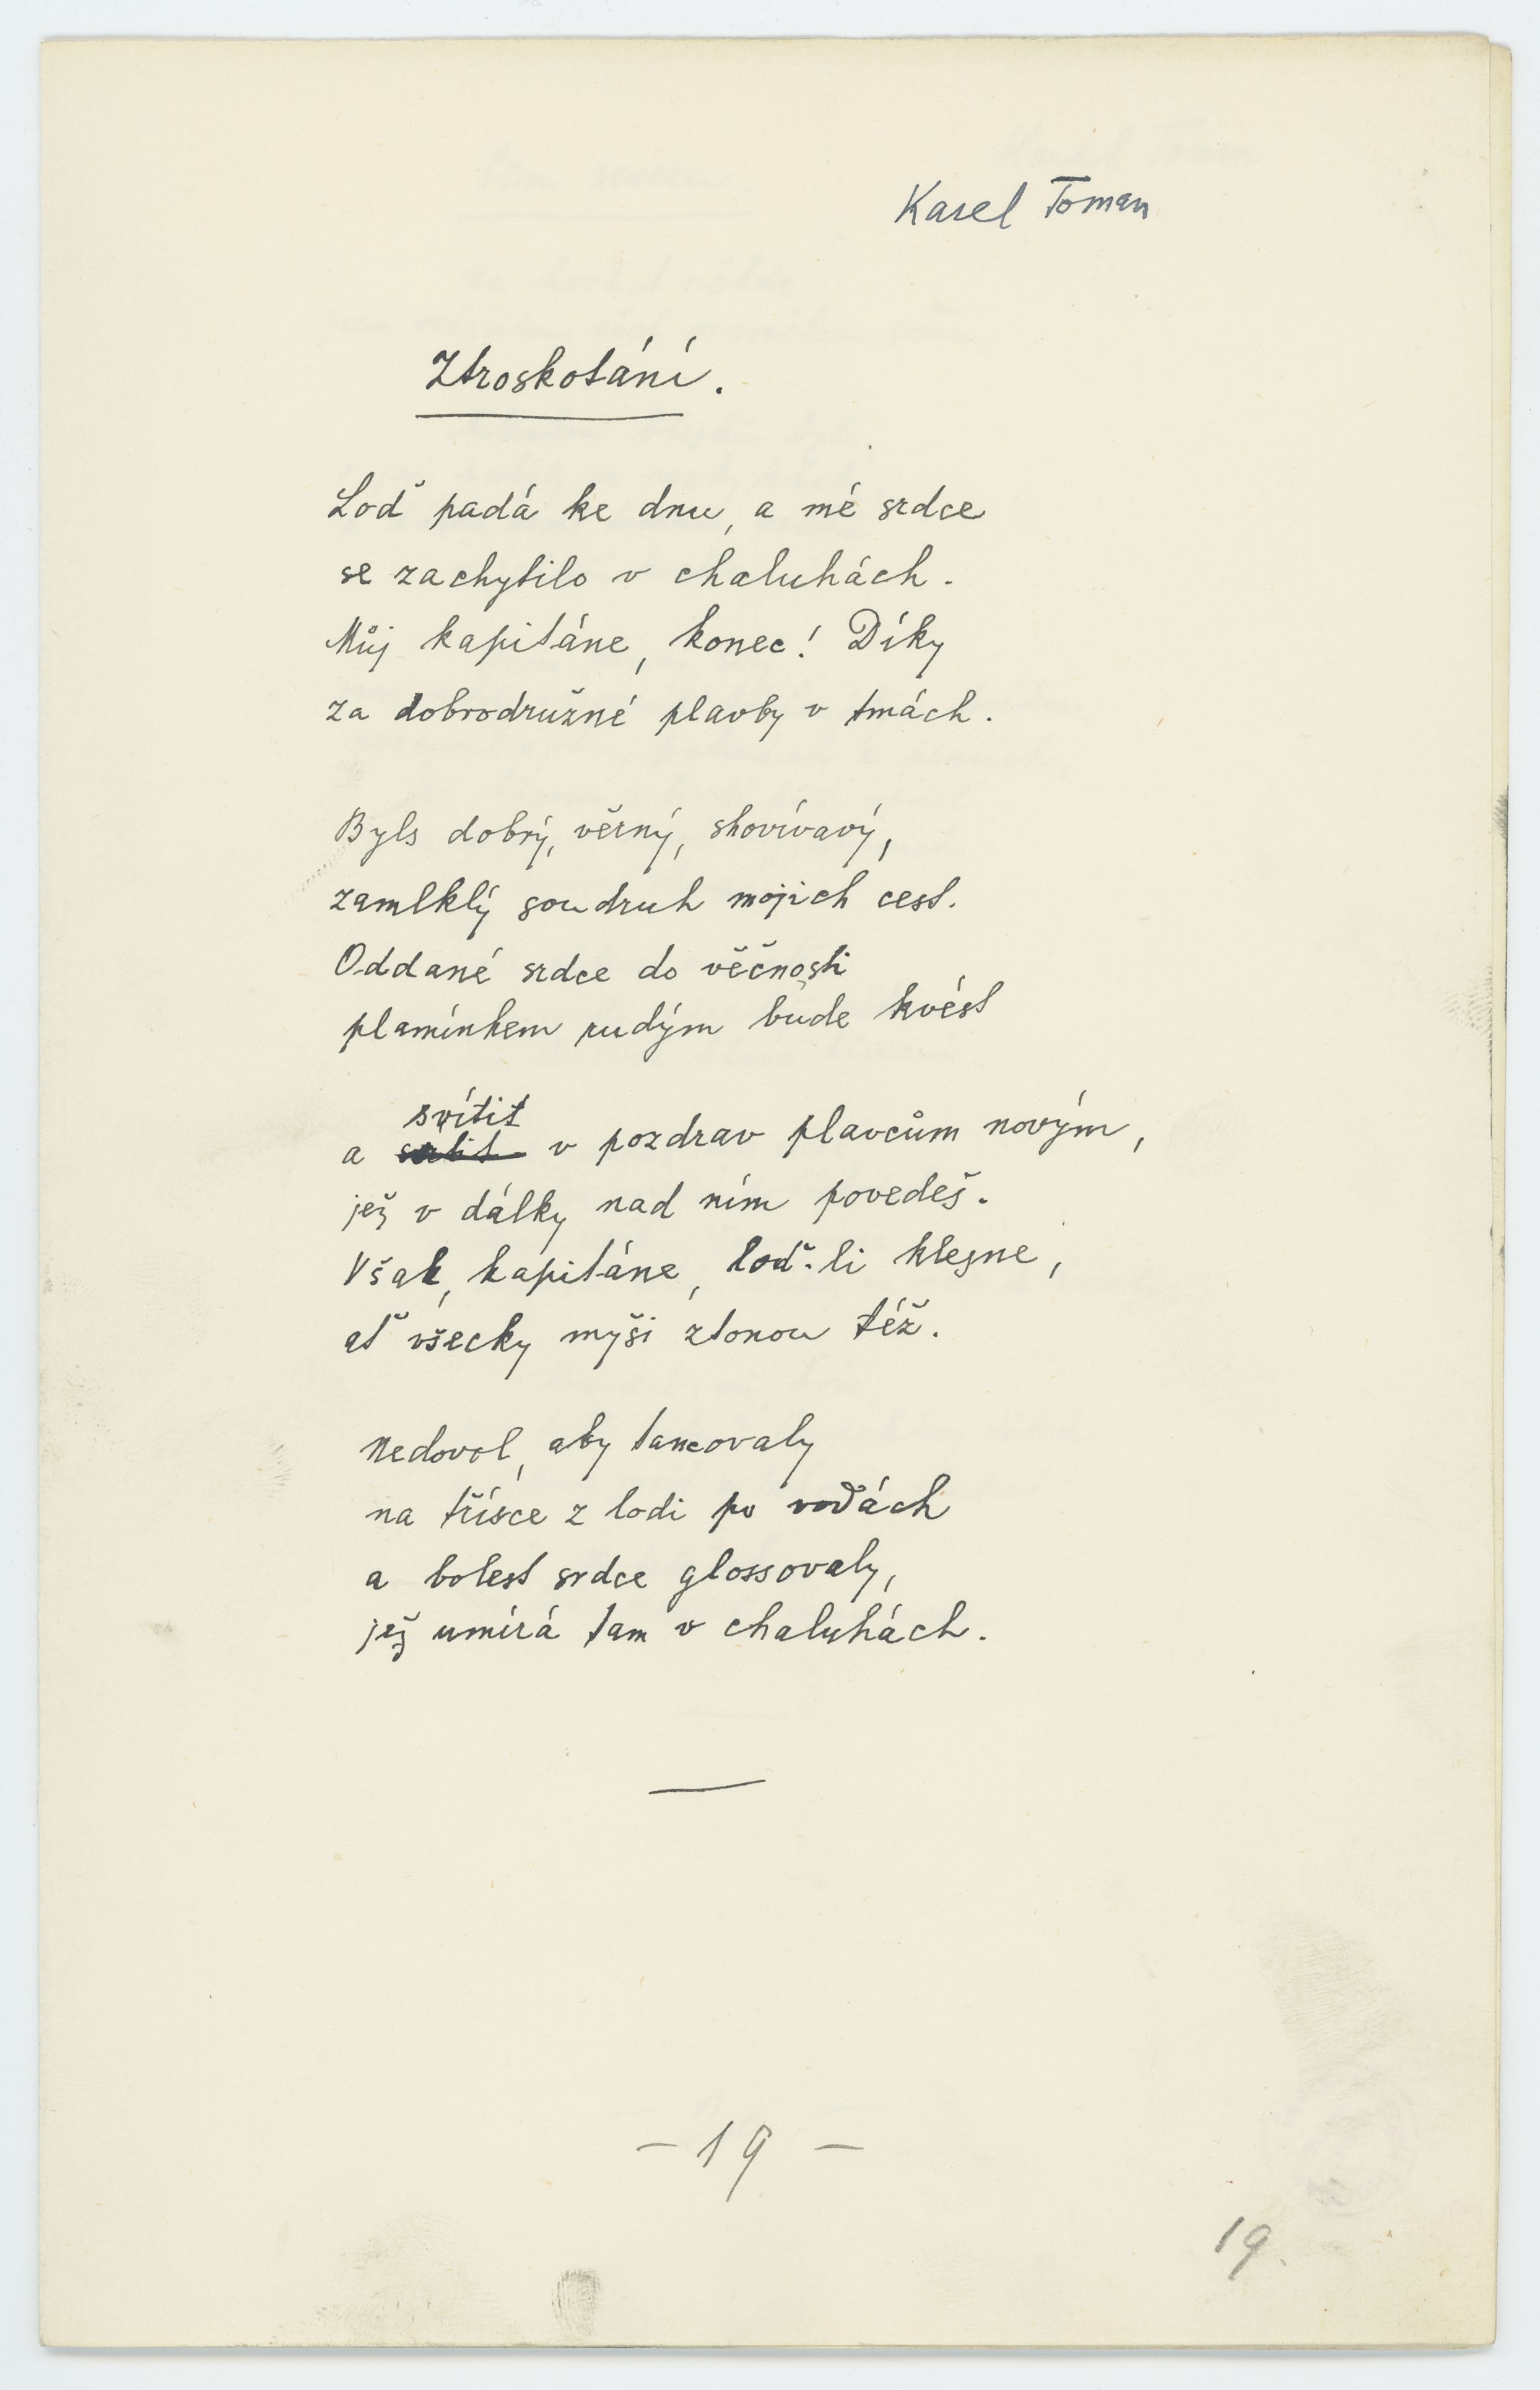 Karel Toman
Ztroskotání.
Loď padá ke dnu, a mé srdce
se zachytilo v chaluhách.
Můj kapitáne, konec! Díky
za dobrodružné plavby v tmách.
Byls dobrý, věrný, shovívavý,
zamlklý soudruh mojich cest.
Oddané srdce do věčnosti
plamínkem rudým bude kvést
svítit
a v pozdrav plavcům novým,
jež v dálky nad ním povedeš.
Však, kapitáne, loď-li klesne,
ať všecky myši ztonou též.
Nedovol, aby tancovaly
na třísce z lodi po vodách
a bolest srdce glossovaly,
jež umírá tam v chaluhách.
— 19 —
19.